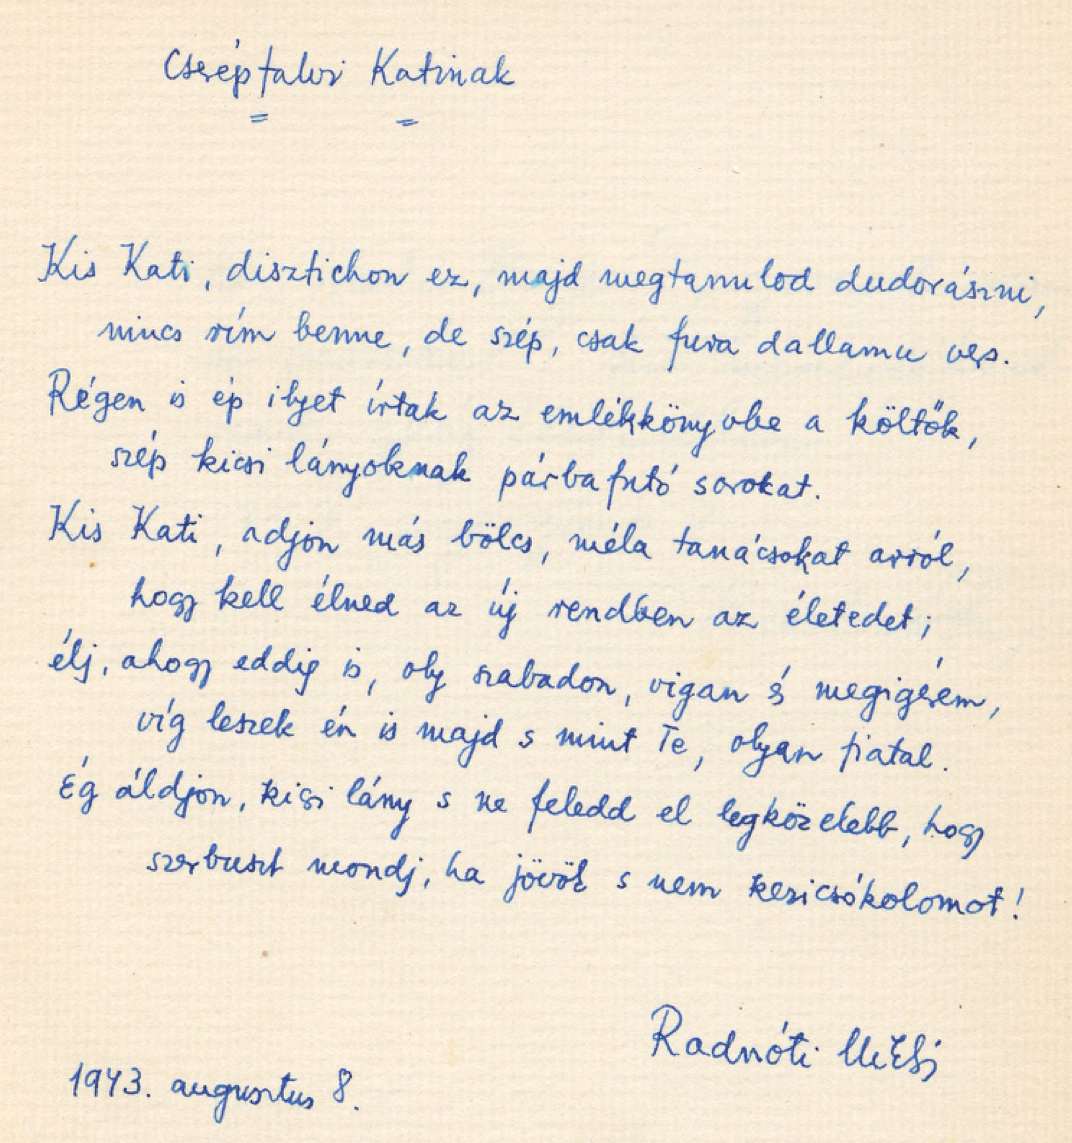 Cserépfalvi Katinak
Kis Kati, disztichon ez, majd megtanulod dudorászni,
nincs rím benne, de szép, csak fura dallamu vers.
Régen is ép ilyet írtak az emlékkönyvbe a költők,
szép kicsi lányoknak párbafutó sorokat.
Kis Kati, adjon más bölcs, méla tanácsokat arról,
hogy kell élned az új rendben az életedet;
élj, ahogy eddig is, oly szabadon, vigan és megigérem,
víg leszek én is majd s mint Te, olyan fiatal.
Ég áldjon, kicsi lány s ne feledd el legközelebb, hogy
szerbuszt mondj, ha jövök s nem kezicsókolomot!
Radnóti Miklós
1943. augusztus 8.